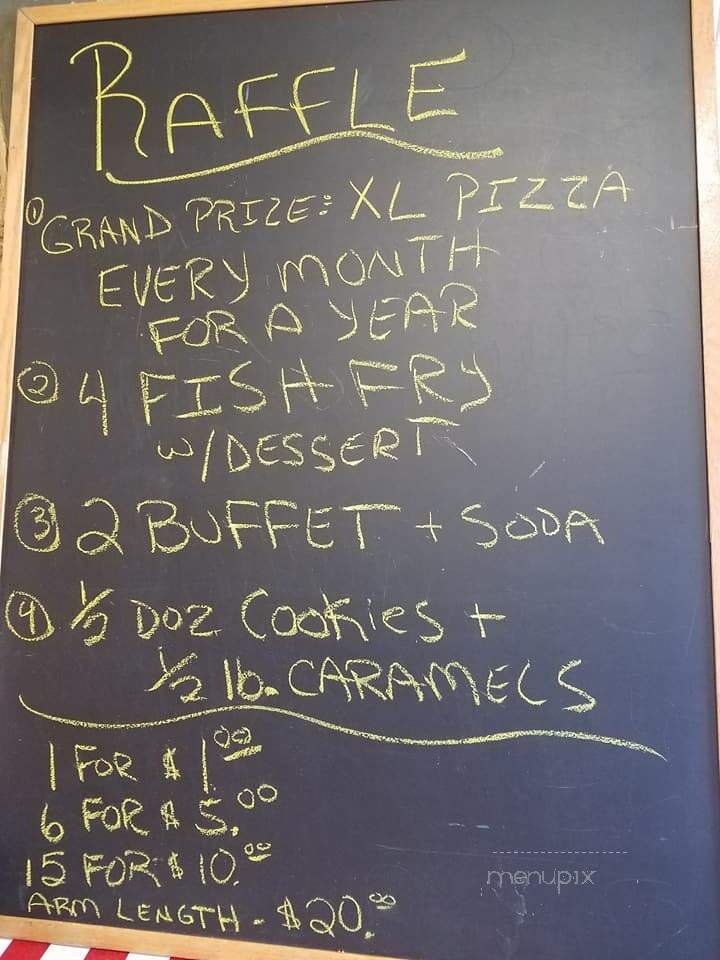 RAFFLE
① GRAND PRIZE: XL PIZZA
EVERY MONTH
FOR A YEAR
② 4 FISH FRY
W/DESSERT
③ 2 BUFFET + SODA
④ ½ DOZ COOKIES +
½ lb. CARAMELS
1 FOR $1.00
6 FOR $5.00
15 FOR $10.00
ARM LENGTH - $20.00
menupix